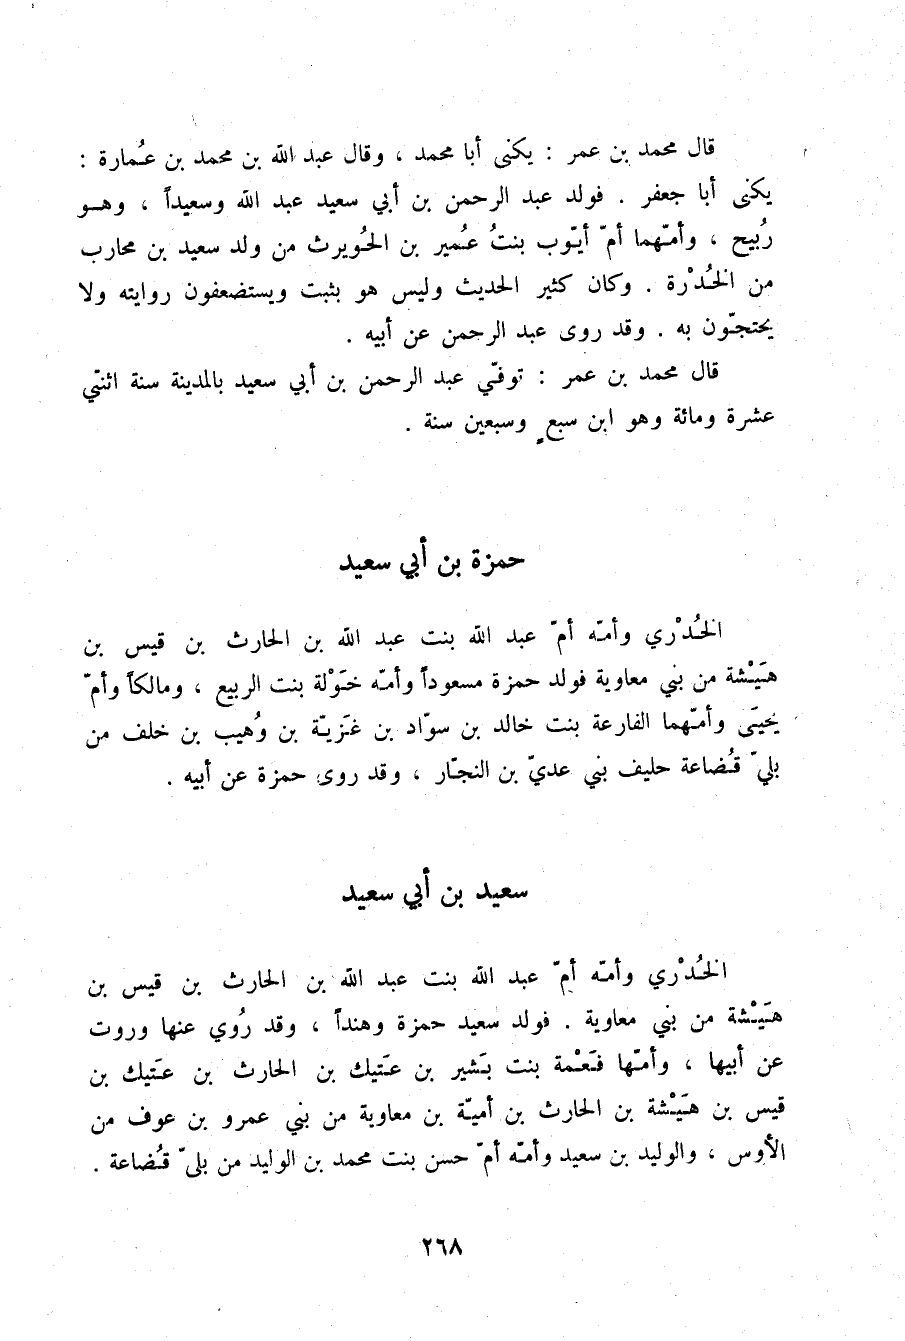 قال محمد بن عمر : يكنى أبا محمد ، وقال عبد الله بن محمد بن عُمارة :
يكنى أبا جعفر . فولد عبد الرحمن بن أبي سعيد عبد الله وسعيداً ، وهو
رُبيح ، وأمّهما أمّ أيّوب بنتُ عُمير بن الحُويرث من ولد سعيد بن محارب
من الخُدْرة . وكان كثير الحديث وليس هو بثبت ويستضعفون روايته ولا
يحتجّون به . وقد روى عبد الرحمن عن أبيه .
قال محمد بن عمر : توفّي عبد الرحمن بن أبي سعيد بالمدينة سنة اثنتي
عشرة ومائة وهو ابن سبعٍ وسبعين سنة .
حمزة بن أبي سعيد
الخُدْري وأمّه أمّ عبد الله بنت عبد الله بن الحارث بن قيس بن
هَيْشة من بني معاوية فولد حمزة مسعوداً وأمّه خَوْلة بنت الربيع ، ومالكاً وأمّ
يحيَى وأمّهما الفارعة بنت خالد بن سوّاد بن غَزيّة بن وُهيب بن خلف من
بليّ قُضاعة حليف بني عديّ بن النجّار ، وقد روى حمزة عن أبيه .
سعيد بن أبي سعيد
الخُدْري وأمّه أمّ عبد الله بنت عبد الله بن الحارث بن قيس بن
هَيْشة من بني معاوية . فولد سعيد حمزة وهنداً ، وقد رُوي عنها وروت
عن أبيها ، وأمّها فَعْمة بنت بَشير بن عَتيك بن الحارث بن عَتيك بن
قيس بن هَيْشة بن الحارث بن أميّة بن معاوية من بني عمرو بن عوف من
الأوس ، والوليد بن سعيد وأمّه أمّ حسن بنت محمد بن الوليد من بليّ قُضاعة .
٢٦٨